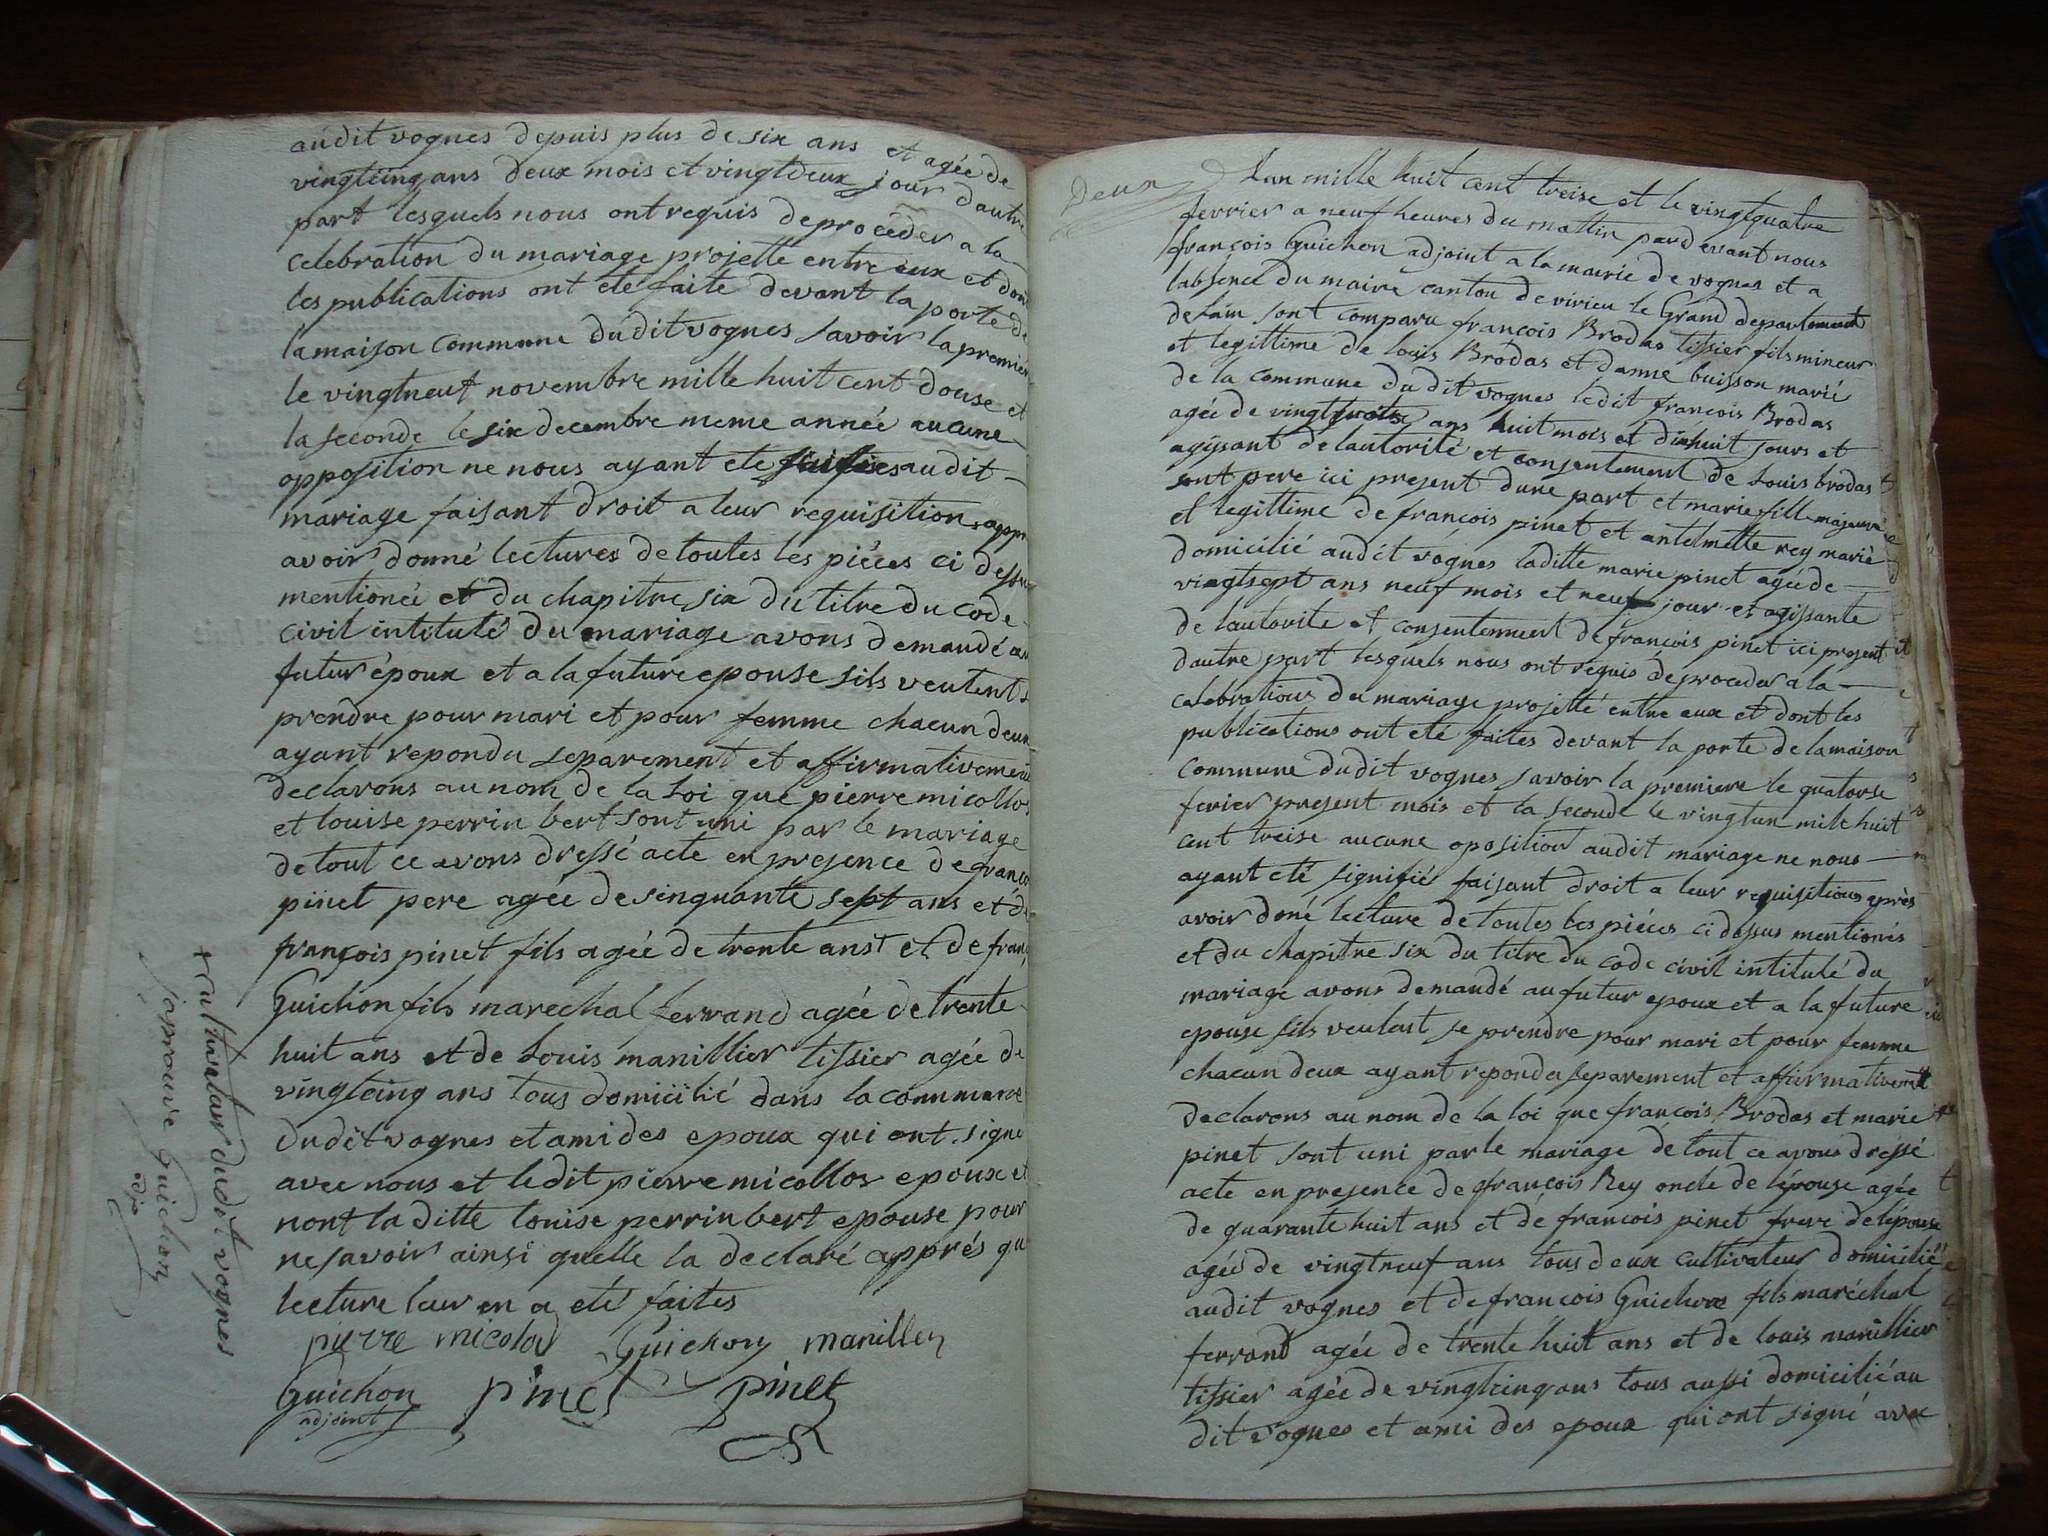 audit vognes depuis plus de six ans et agée de
vingtcinq ans deux mois et vingtdeux jour dautre
part lesquels nous ont requis de procéder a la
celebration du mariage projetté entre eux et dont
les publications ont eté faite devant la porte de
la maison commune dudit vognes savoir la premiere
le vingtneuf novembre mille huit cent douse et
la seconde le six decembre meme année aucune
opposition ne nous ayant eté audit
mariage faisant droit a leur requisition appr
avoir donné lectures de toutes les piéces ci dessu
mentionée et du chapitre six du titre du code
civil intitulé du mariage avons demandé au
futur époux et a la future epouse sils veulent s
prendre pour mari et pour femme chacun deux
ayant repondu separement et affirmativement
declarons au nom de la Loi que pierre micollos
et louise perrin bert sont uni par le mariage
de tout ce avons dressé acte en presence de franco
pinet pere agée de sinquante sept ans et de
françois pinet fils agée de trente ans+ et de franç
Guichon fils marechal ferrand agée de trente
huit ans et de Louis manillier tissier agée de
vingtcinq ans tous domicilié dans la commune
dudit vognes et ami des epoux qui ont signé
avec nous et ledit pierre micollos epoux et
nont la ditte louise perrin bert epouse pour
ne savoir ainsi quelle la declaré apprés qu
lecture leur en a eté faites
pierre micolod Guichon manillier
Guichon pinet pinet
adjoint
+ cultivateur dudit vognes
japrouve Guichon
adjo
Deux
Lan mille huit cent treise et le vingtquatre
fevrier a neuf heures du mattin pardevant nous
françois Guichon adjoint a la mairie de vognes et a
labsence du maire canton de virieu le Grand departement
de lain sont comparu françois Brodas tissier fils mineur
et legittime de louis Brodas et danne buisson marié
de la commune dudit vognes ledit françois Brodas
agée de vingt ans huit mois et dixhuit jours et
agissant de lautorité et consentement de Louis brodas
sont pere ici present dune part et marie fille majeure
et legittime de françois pinet et antelmette rey marié
domicilié audit vognes laditte marie pinet agée de
vingtsept ans neuf mois et neuf jour et agissante
de lautorite et consentement de françois pinet ici present
dautre part lesquels nous ont requis de proceder a la
celebration du mariage projetté entre eux et dont les
publications ont eté faites devant la porte de la maison
commune dudit vognes savoir la premiere le quatorse
fevrier present mois et la seconde le vingtun mile huit
cent treise aucune oposition audit mariage ne nous
ayant eté signifié faisant droit a leur requisitions aprés
avoir doné lecture de toutes les piéces ci dessus mentionés
et du chapitre six du titre du code civil intitulé du
mariage avons demandé au futur epoux et a la future
epouse sils veulent se prendre pour mari et pour femme
chacun deux ayant repondu separement et affirmativemet
declarons au nom de la loi que françois Brodas et marie
pinet sont uni par le mariage de tout ce avons dressé
acte en presence de françois Rey oncle de lépouse agée
de quarante huit ans et de françois pinet frere de lépouse
agée de vingtneuf ans tous deux cultivateur domicilié
audit vognes et de françois Guichon fils maréchal
ferrand agée de trente huit ans et de louis manillier
tissier agée de vingtcinq ans tous aussi domicilié au
dit vognes et ami des epoux qui ont signé avec